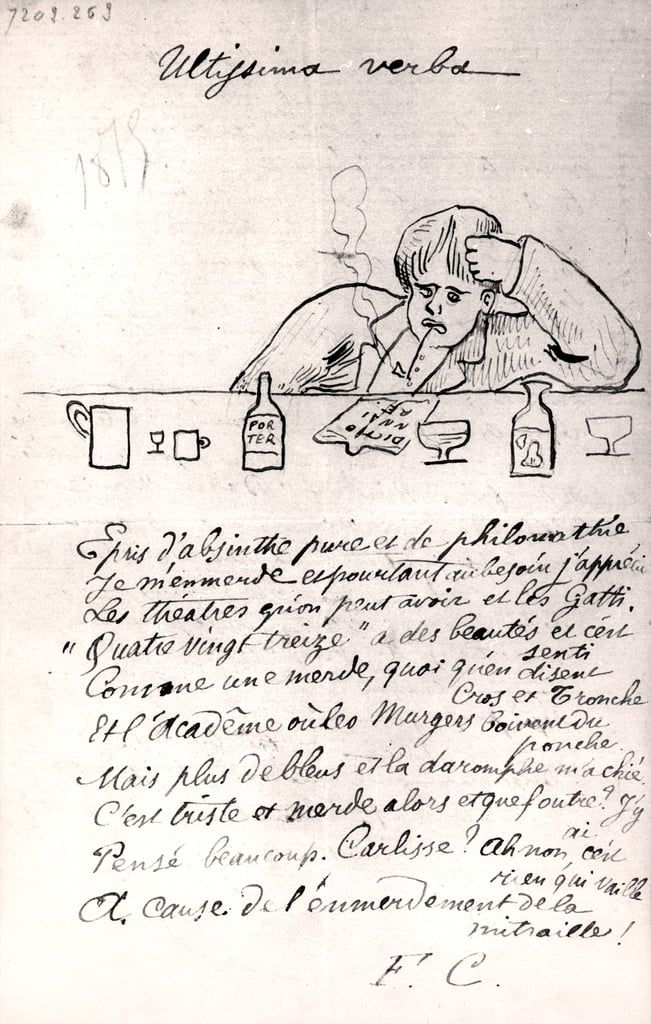 7203.263
Ultissima verba
1875.
POR
TER
DICTIO
NNAI
RE.
Epris d'absinthe pure et de philomathie
Je m'emmerde et pourtant au besoin j'apprécie
Les théâtres qu'on peut avoir et les Gatti.
"Quatre vingt treize" a des beautés et c'est senti
Comme une merde, quoi qu'en disent
Cros et Tronche
Et l'Académe où les Murgers boivent du
ponche.
Mais plus de bleus et la daromphe m'a chié.
C'est triste et merde alors et que foutre? J'y
ai
Pensé beaucoup. Carlisse? Ah non, c'est
rien qui vaille
A cause de l'emmerdement de la
mitraille!
F. C.